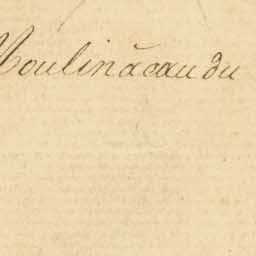 Moulin à eau du